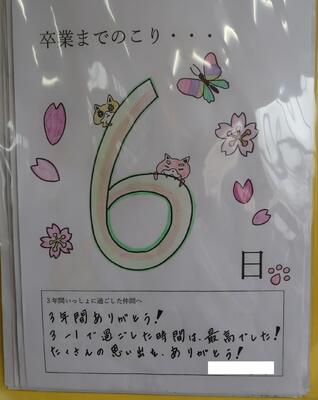 卒業までのこり・・・
6
日
３年間いっしょに過ごした仲間へ
3年間ありがとう！
3-1で過ごした時間は、最高でした！
たくさんの思い出も、ありがとう！